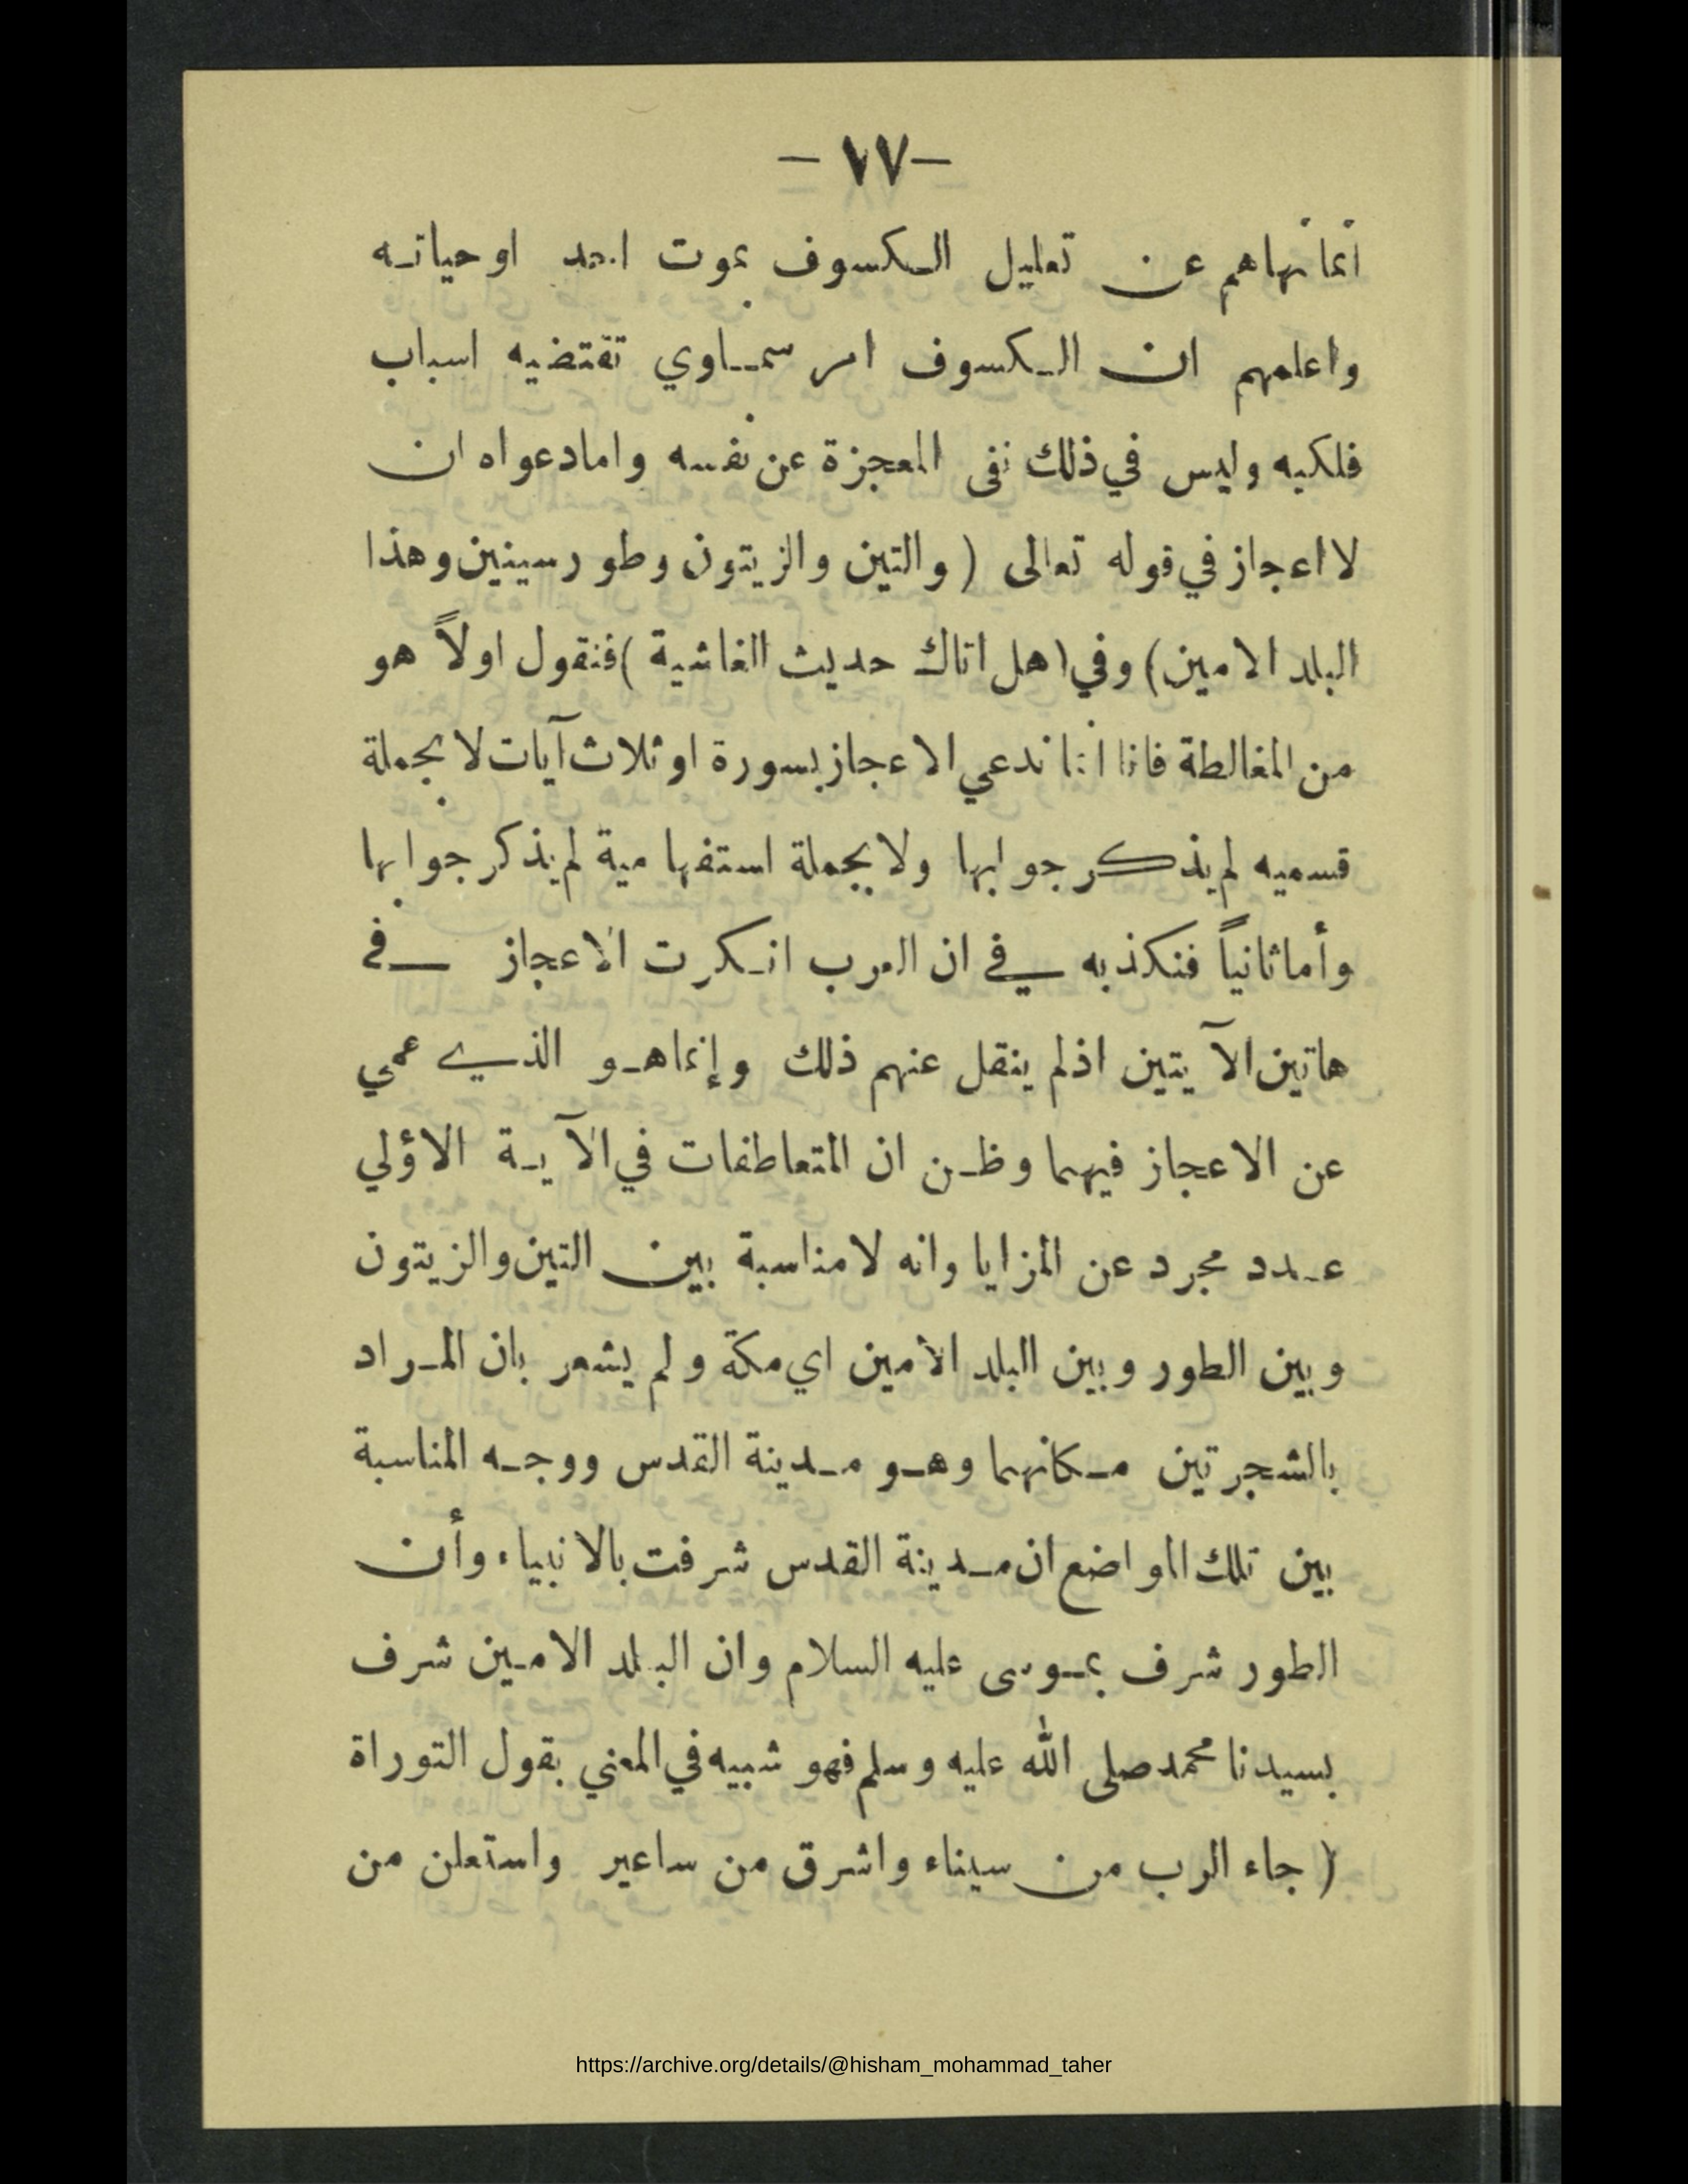 -٧٧-
انما نهاهم عن تعليل الكسوف بموت احد او حياته
واعلمهم ان الكسوف امر سماوي تقتضيه اسباب
فلكيه وليس في ذلك نفى المعجزة عن نفسه واما دعواه ان
لا اعجاز في قوله تعالى ( والتين والزيتون وطور سينين وهذا
البلد الامين) وفي (هل اتاك حديث الغاشية )فنقول اولاً هو
من المغالطة فانا انما ندعي الاعجاز بسورة او ثلاث آيات لا بجملة
قسميه لم يذكر جوابها ولا بجملة استفهامية لم يذكر جوابها
وأما ثانياً فنكذبه في ان العرب انكرت الاعجاز في
هاتين الآيتين اذ لم ينقل عنهم ذلك وإنما هو الذي عمي
عن الاعجاز فيهما وظن ان المتعاطفات في الآية الاؤلي
عدد مجرد عن المزايا وانه لا مناسبة بين التين والزيتون
وبين الطور وبين البلد الأمين اي مكة ولم يشعر بان المراد
بالشجرتين مكانهما وهو مدينة القدس ووجه المناسبة
بين تلك المواضع ان مدينة القدس شرفت بالانبياء وأن
الطور شرف بموسى عليه السلام وان البلد الامين شرف
بسيدنا محمد صلى الله عليه وسلم فهو شبيه في المعني بقول التوراة
( جاء الرب من سيناء واشرق من ساعير واستعلن من
https://archive.org/details/@hisham_mohammad_taher